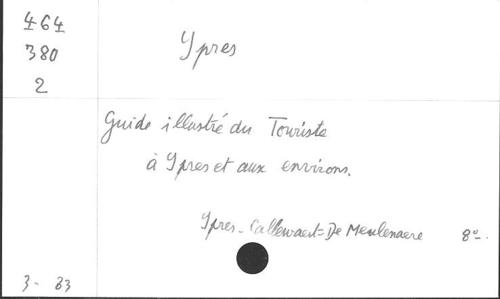 464
380
2
Ypres
Guide illustré du Touriste
à Ypres et aux environs.
Ypres - Callewaert=De Meulenaere 8º-.
3- 33